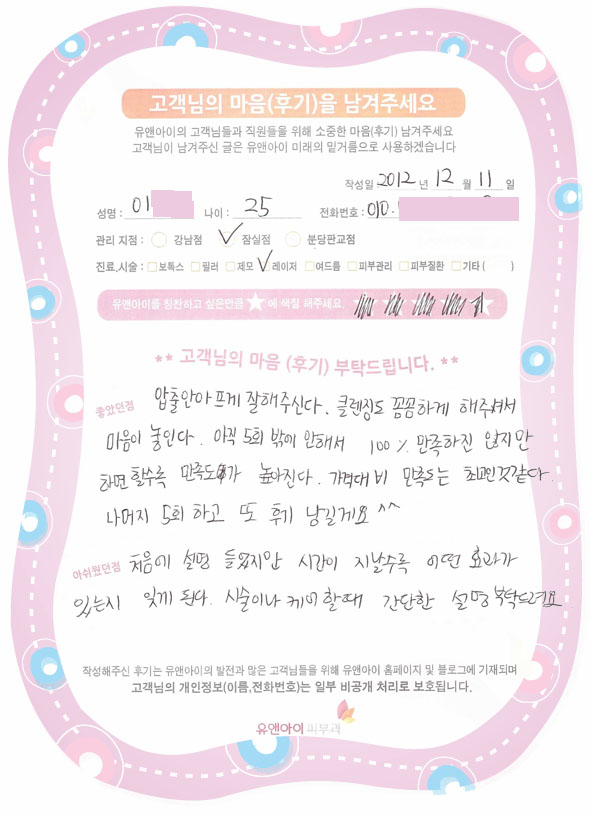 고객님의 마음(후기)을 남겨주세요
유앤아이의 고객님들과 직원들을 위해 소중한 마음(후기) 남겨주세요
고객님이 남겨주신 글은 유앤아이 미래의 밑거름으로 사용하겠습니다
작성일 2012 년 12 월 11 일
성명 : 이 나이 : 25 전화번호 : 010.
관리 지점 : 강남점 잠실점 분당판교점
진료,시술 : 보톡스 필러 제모 레이저 여드름 피부관리 피부질환 기타 ( )
유앤아이를 칭찬하고 싶은만큼 ★에 색칠 해주세요.
** 고객님의 마음 (후기) 부탁드립니다. **
좋았던점 압출안아프게 잘해주신다. 클렌징도 꼼꼼하게 해주셔서
마음이 놓인다. 아직 5회 밖에 안해서 100% 만족하진 않지만
하면 할수록 만족도가 높아진다. 가격대비 만족도는 최고인것같다.
나머지 5회 하고 또 후기 남길게요 ^^
아쉬웠던점 처음에 설명 들었지만 시간이 지날수록 어떤 효과가
있는지 잊게 된다. 시술이나 케어 할때 간단한 설명 부탁드려요
작성해주신 후기는 유앤아이의 발전과 많은 고객님들을 위해 유앤아이 홈페이지 및 블로그에 기재되며
고객님의 개인정보(이름,전화번호)는 일부 비공개 처리로 보호됩니다.
유앤아이 피부과